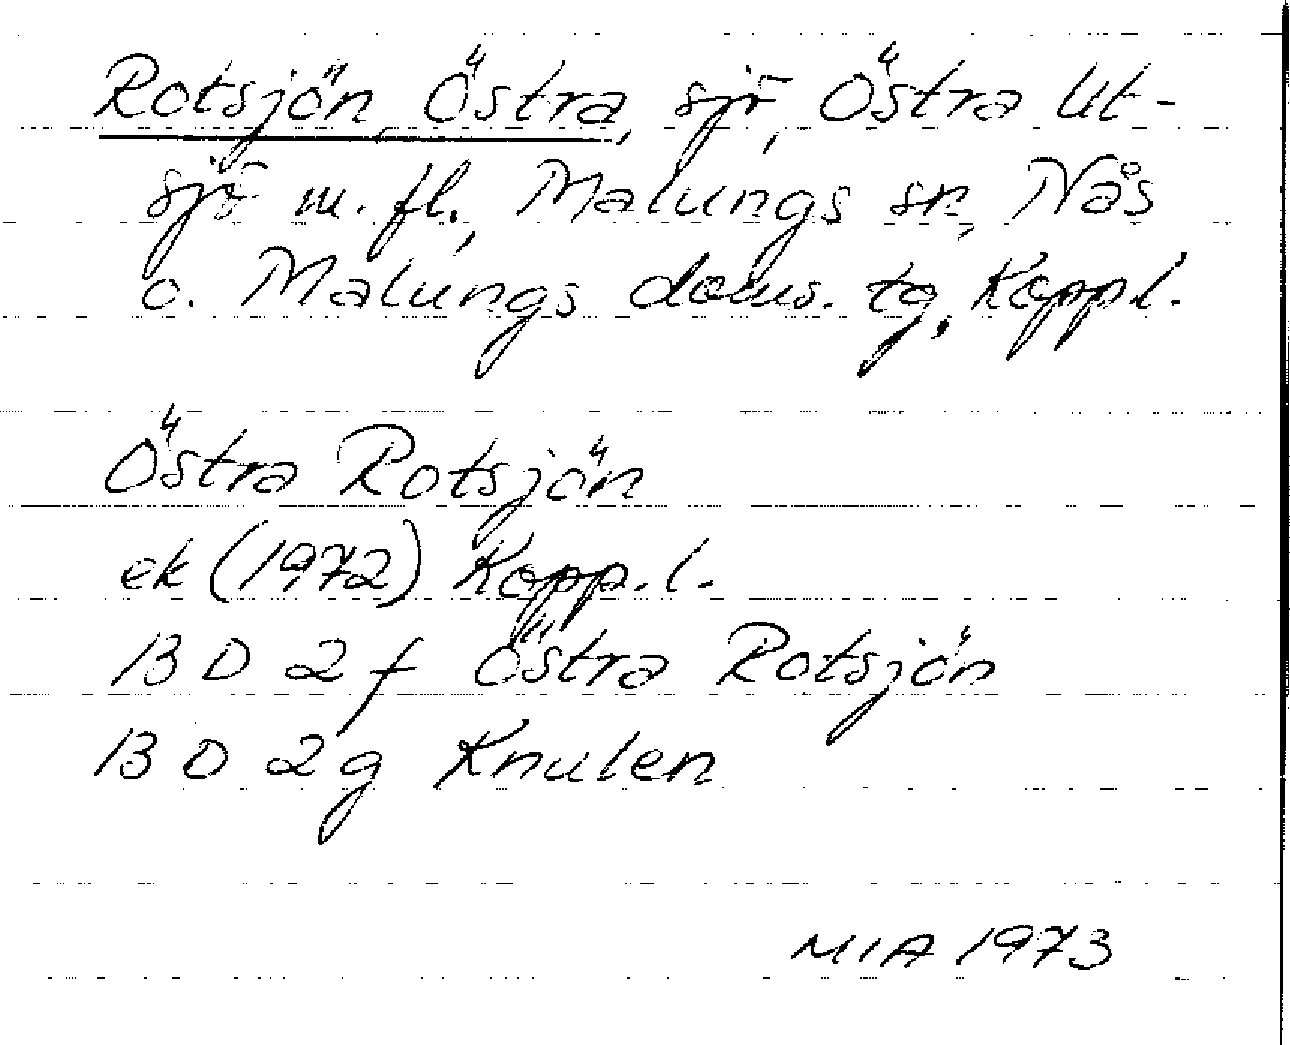 Rotsjön, Östra, sjö, Östra Ut-
sjö m.fl., Malungs sn, Nås
o. Malungs doms. tg, Koppl.
Östra Rotsjön
ek (1972) Kopp.l.
13 D 2 f Östra Rotsjön
13 D 2 g Knulen
MIA 1973